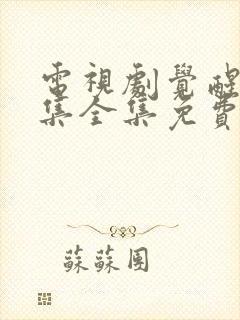 電視劇覺醒
集全集免費
蘇蘇團